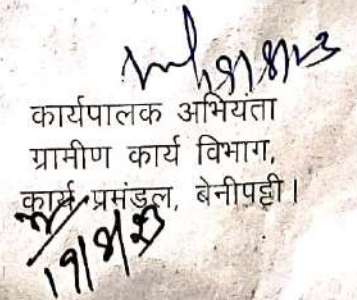 कार्यपालक अभियंता
ग्रामीण कार्य विभाग,
कार्य प्रमंडल, बेनीपट्टी।
19/8/23